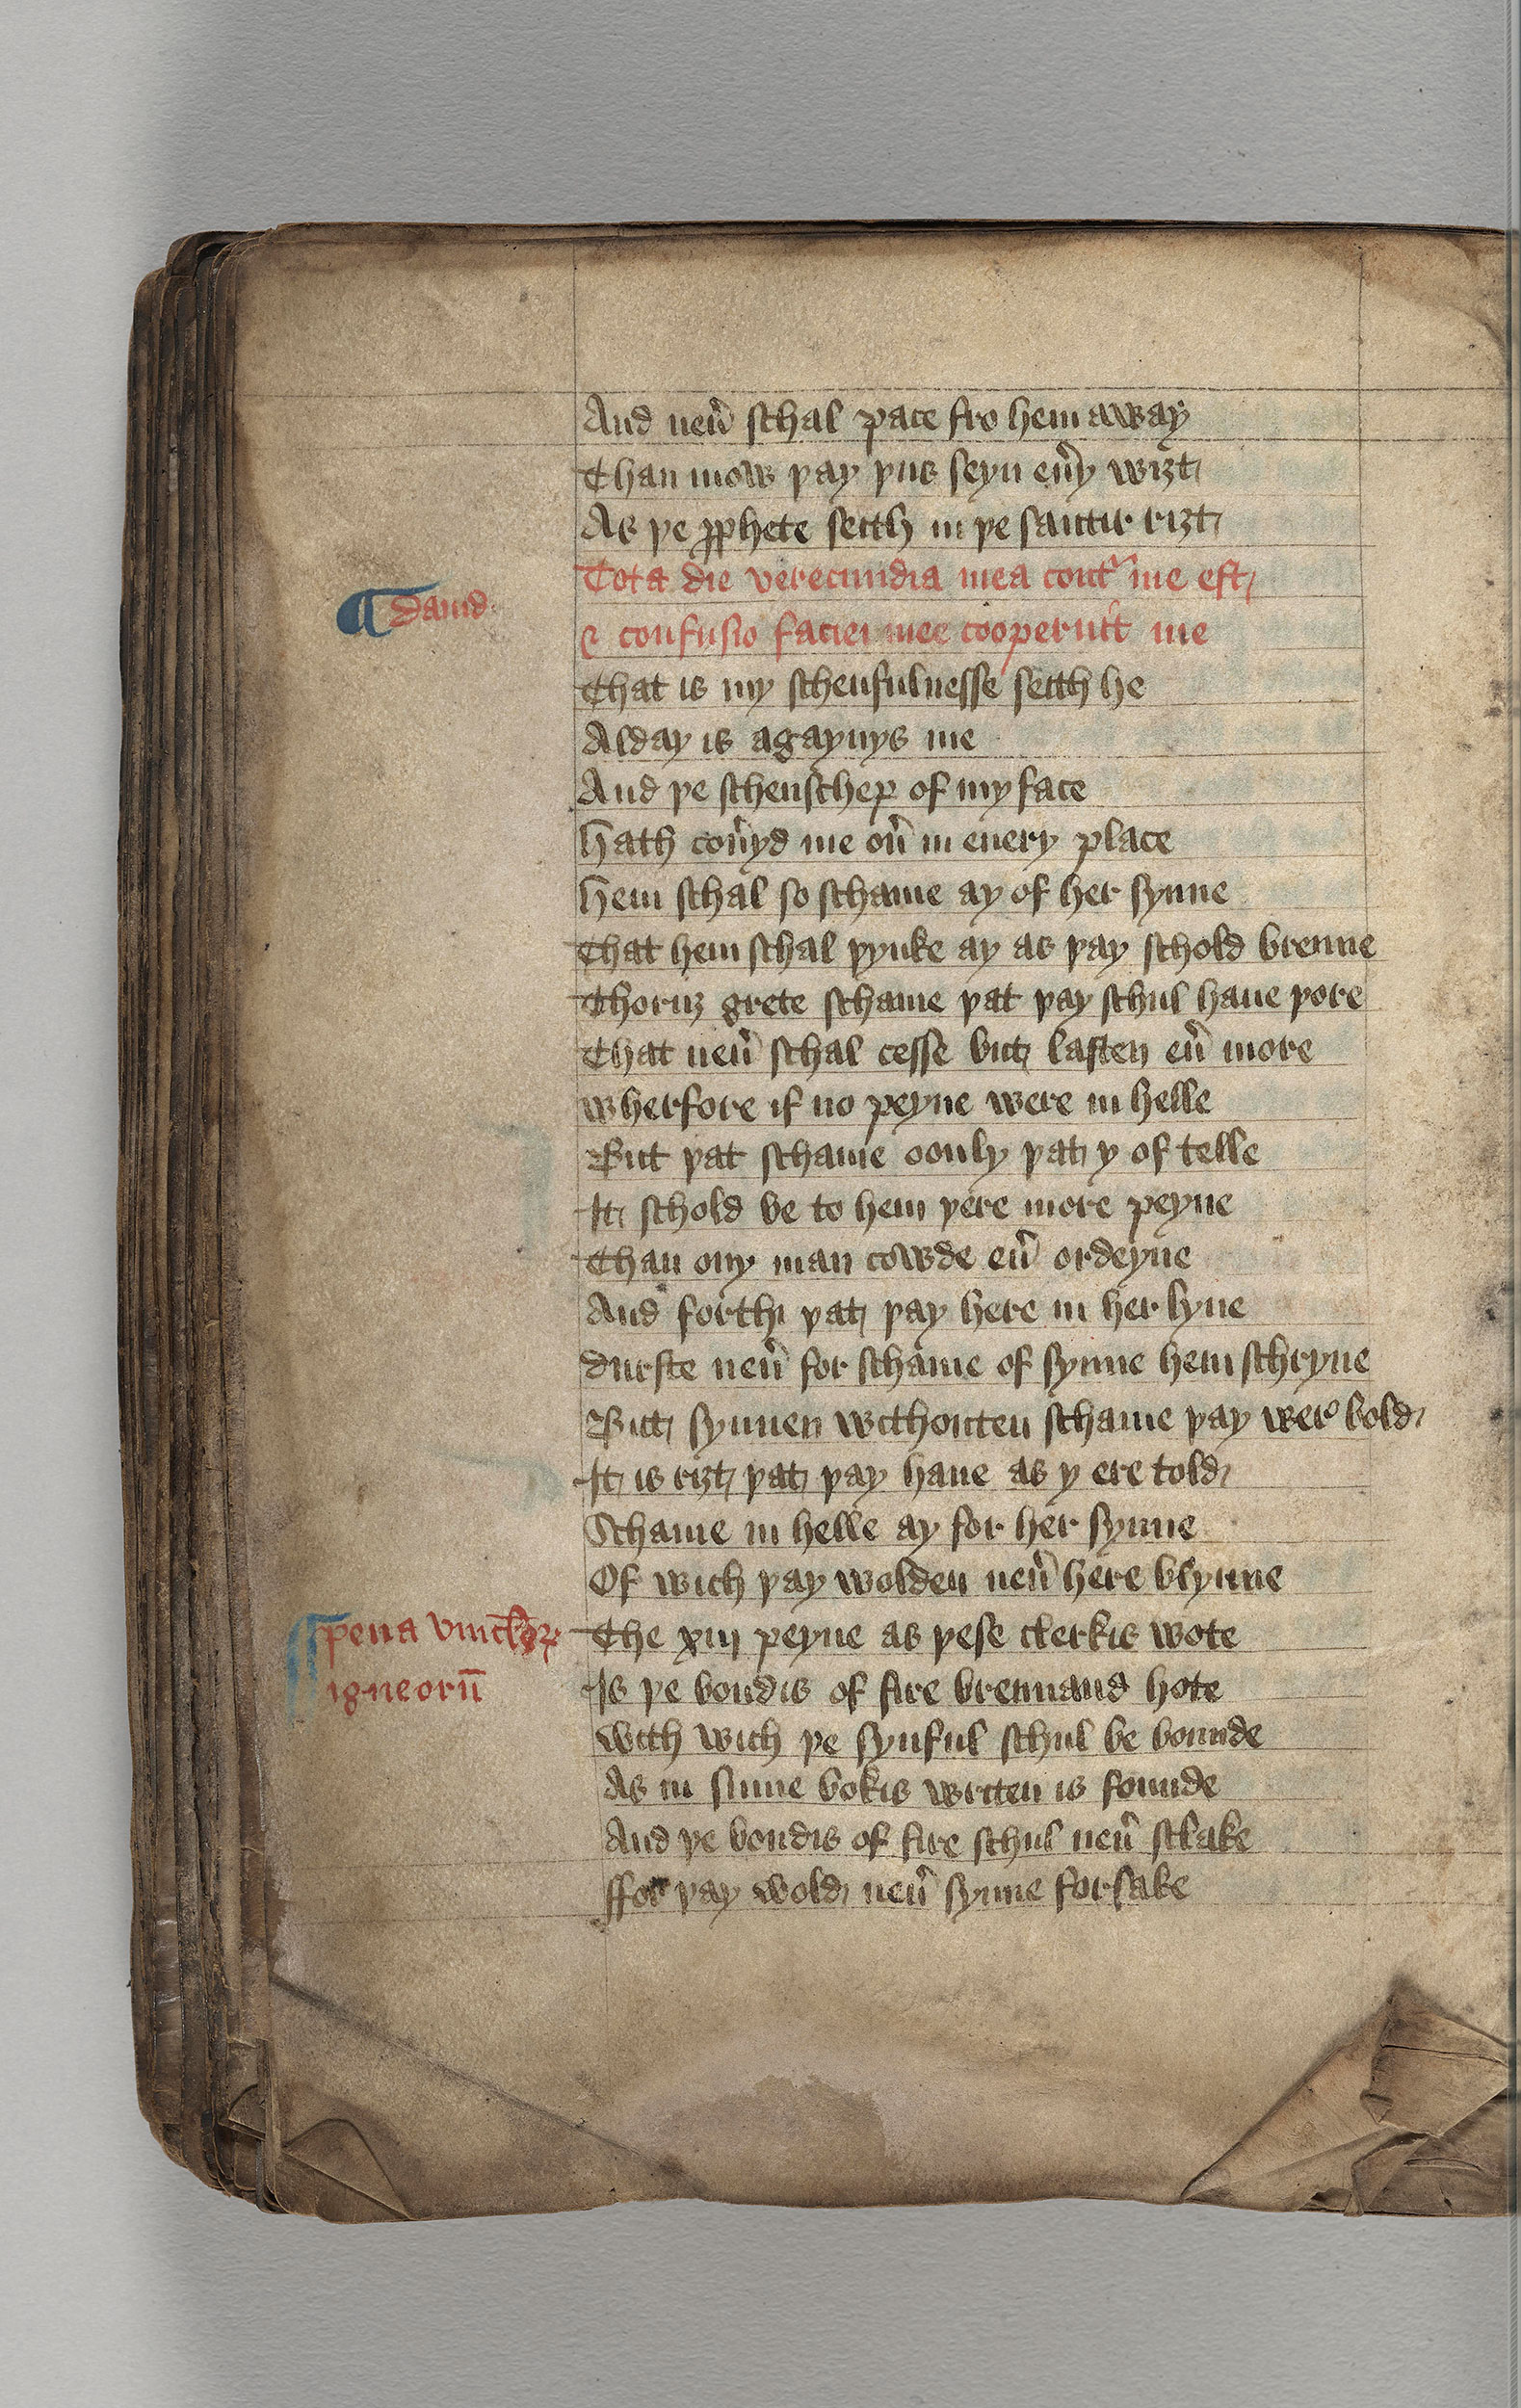 And neu̾ schal pace fro hem away
Than mow þay þus seyn eu̾y wiȝt
As þe ꝓphete seith in þe sautir riȝt
Tota die verecundia mea contᵃ me est
¶ dauid
& confusio faciei mee cooperuit me
That is my schenfulnesse seith he
Alday is agaynys me
And þe schenschep of my face
Hath cou̾yd me ou̾ in euery place
Hem schal so schame ay of her synne
That hem schal þynke ay as þay schold brenne
Thoruȝ grete schame þat þay schul haue þore
That neu̾ schal cesse but lasten eu̾ more
wherfore if no peyne were in helle
But þat schame oonly þat y of telle
It schold be to hem þere more peyne
Than ony man cowde eu̾ ordeyne
And forthi þat þay here in her lyue
durste neu̾ for schame of synne hem schryue
But synnen withouten schame þay wer bold
It is riȝt þat þay haue as y ere told
Schame in helle ay for her synne
Of wich þay wolden neu̾ here blynne
¶ pena vinclꝫ
The xiij peyne as þese clerkis wote
igneorū
Is þe bondis of fire brennand hote
with wich þe synful schul be bounde
As in sume bokis writen is founde
And þe bondis of fire schul neu̾ slake
ffor þay wold neu̾ synne forsake